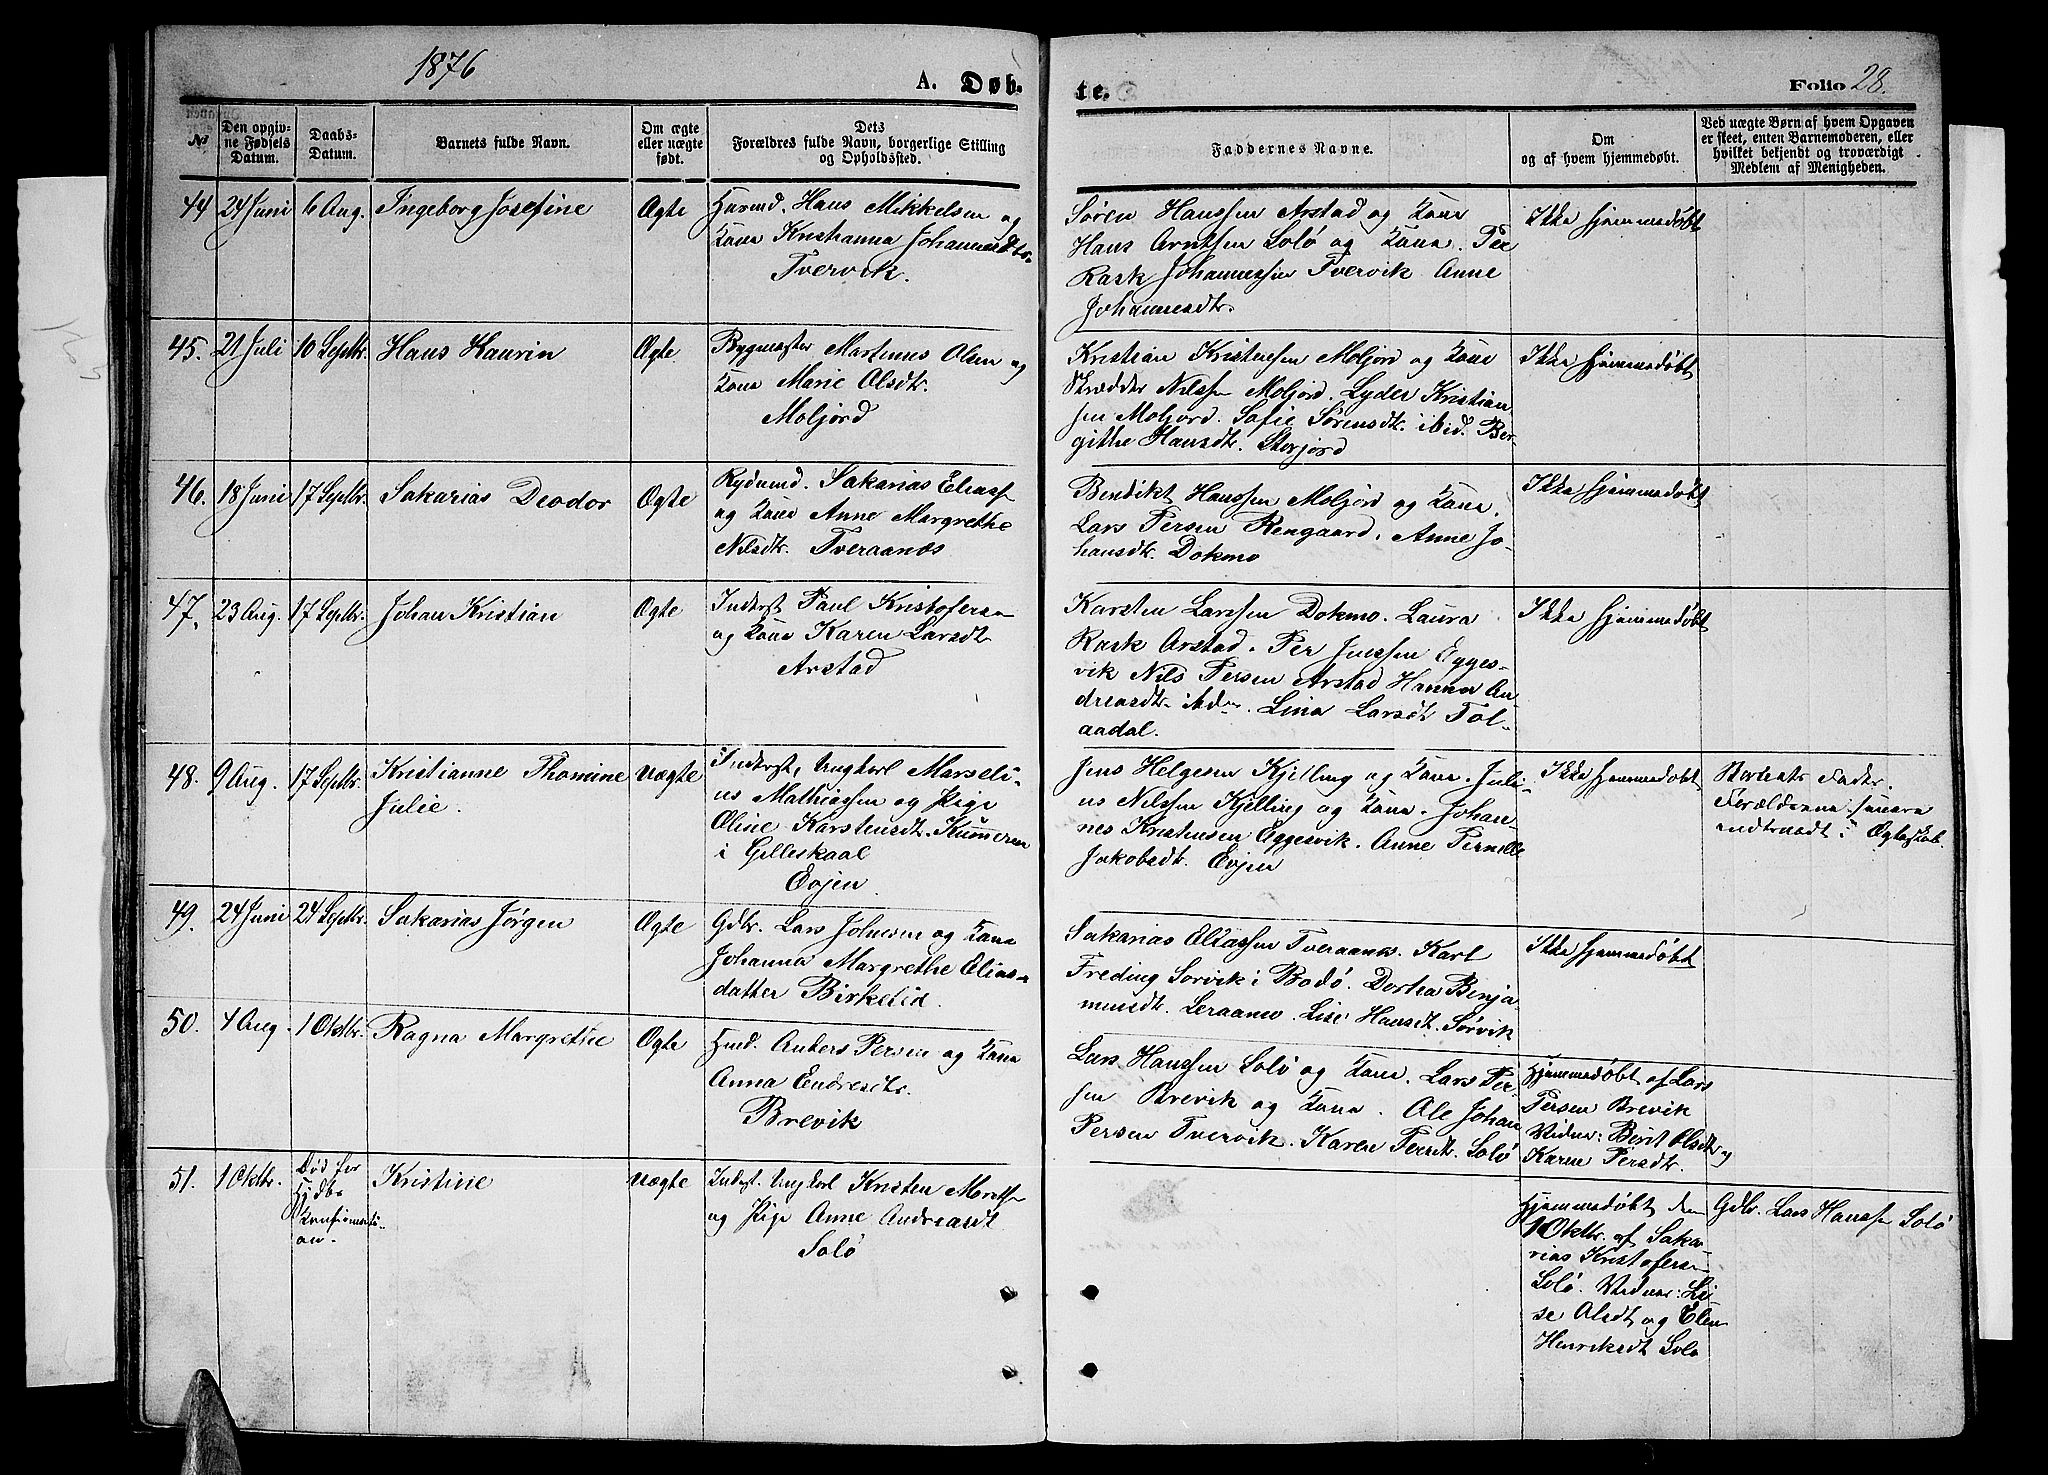 1876
A. Døb-
te.
Folio 28.
No
Den opgiv-
ne Fødsels
Datum.
Daabs-
Datum.
Barnets fulde Navn.
Om ægte
eller uægte
født.
Dets
Forældres fulde Navn, borgerlige Stilling
og Opholdssted.
Faddernes Navne.
Om
og af hvem hjemmedøbt.
Ved uægte Børn af hvem Opgaven
er skeet, enten Barnemoderen, eller
hvilket bekjendt og troværdigt
Medlem af Menigheden.
44 24 Juni 6 Aug. Ingeborg Josefine Ægte
Husmd. Hans Mikkelsen og
Kone Kristianna Johannesdtr.
Tvervik.
Søren Hanssen Arstad og Kone
Hans Arntsen Solö og Kone. Per
Rask Johannessen Tvervik Anne
Johannesdtr.
Ikke hjemmedøbt
45. 21 Juli 10 Septbr. Hans Haurin Ægte
Bygmester Martinus Olsen og
Kone Marie Olsdtr.
Moljord
Kristian Kristensen Moljord og Kone
Skrædder Nilssen Moljord. Lyder Kristian
sen Moljord. Sofie Sørensdtr. ibid. Ber-
githe Hansdtr. Storjord
Ikke hjemmedøbt
46. 18 Juni 17 Septbr. Sakarias Deodor Ægte
Rydnmd. Sakarias Eliass
og Kone Anne Margrethe
Nilsdtr. Tveraanæs
Bendikt Hanssen Moljord og Kone.
Lars Persen Rengaard. Anne Jo-
hansdtr. Dokmo
Ikke hjemmedøbt
47. 23 Aug. 17 Septbr. Johan Kristian Ægte
Inderst Paul Kristofersen
og Kone Karen Larsdtr
Arstad
Karsten Larssen Dokmo. Laura
Rask Arstad. Per Jenssen Egges-
vik Nils Persen Arstad Hanna An-
dreasdtr. Lina Larsdt Tol-
aadal.
Ikke hjemmedøbt
48. 9 Aug. 17 Septbr. Kristianne Thomine uægte
Julie.
Inderst, Ungkarl Marseli-
us Mathiassen og Pige
Oline Karstensdt.
i Gilleskaal
Evjen
Jens Helgesen Kjelling og Kone. Juli-
us Nilssen Kjelling og Kone. Johan-
nes Kristensen Eggesvik. Anne Pernelle
Jakobsdt. Evjen
Ikke hjemmedøbt
Barnets Fader.
Forældrene senere
indtraadt i Ægteskab.
49. 24 Juni 24 Septbr. Sakarias Jørgen Ægte
Gdbr. Lars Johnsen og Kone
Johanna Margrethe Elias-
datter Birkelid.
Sakarias Eliassen Tveraanæs. Karl
Freding Sørvik i Bodö. Dorthea Benja-
minsdt. Leraamo. Lise Hansdt. Sørvik
Ikke hjemmedøbt
50. 4 Aug. 1 Oktbr. Ragna Margrethe Ægte
Husmd. Anders Persen og Kone
Anna Endresdtr.
Brevik
Lars Hanssen Solö og Kone. Lars Per-
sen Brevik og Kone. Ole Johan
Persen Tvervik. Karen Persdt. Solö
Hjemmedøbt af Lars
Persen Brevik
Vidner: Berit Olsdtr og
Karen Persdtr.
51. 1 Oktbr. Død før Kristine uægte
Hjdbs
Konfirmati-
on.
Inderst. Ungkarl Kristen
og Pige Anne Andreasdt
Solö
Hjemmedøbt den
1 Oktbr. af Saka-
rias Kristofersen
Solö. Vidner: Li-
se Olsdt og Elen
Henriksdt Solö
Gdbr. Lars Hanssen Solö